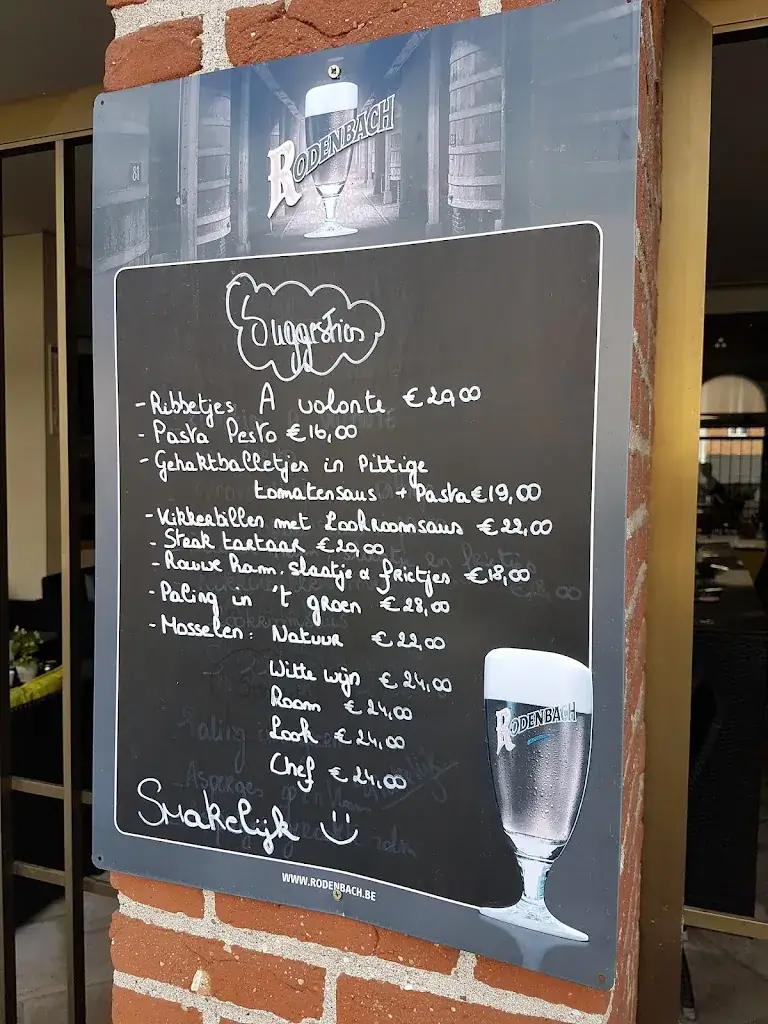 81
RODENBACH
Suggesties
- Ribbetjes A volonte € 20,00
- Pasta Pesto € 16,00
- Gehaktballetjes in Pittige
tomatensaus + Pasta € 19,00
- Kikkerbillen met Lookroomsaus € 22,00
- Steak tartaar € 20,00
- Rauwe ham, slaatje & frietjes € 18,00
- Paling in 't groen € 28,00
- Mosselen: Natuur € 22,00
Witte wijn € 24,00
Room € 24,00
Look € 24,00
Chef € 24,00
Smakelijk
RODENBACH
WWW.RODENBACH.BE